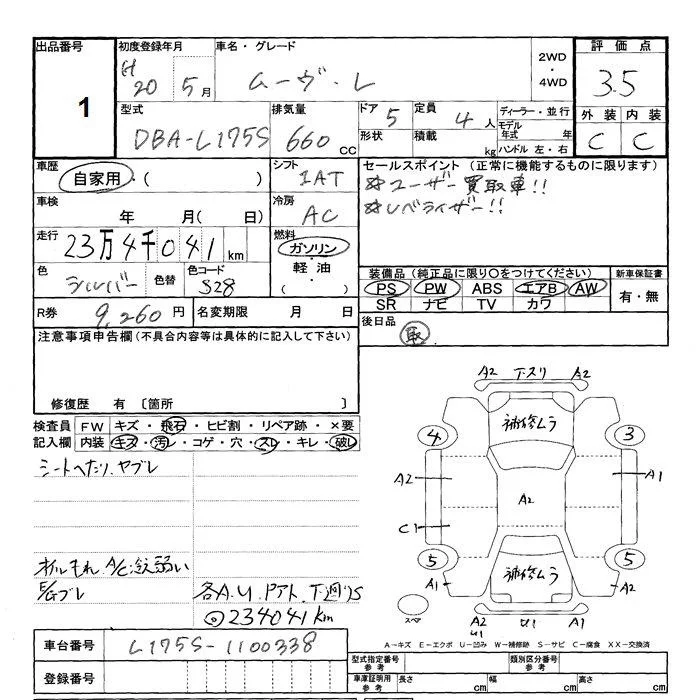 出品番号
1
初度登録年月
H 20年 5月
車名・グレード
ムーヴ・L
2WD
・
4WD
評価点
3.5
外装 内装
C C
型式
DBA-L175S
排気量
660 cc
ドア 5
形状
定員 4人
積載 kg
ディーラー・並行
モデル年式 年
ハンドル 左・右
車歴
自家用・( )
シフト
IAT
セールスポイント (正常に機能するものに限ります)
☆ユーザー買取車!!
☆レベライザー!!
車検
年 月( 日)
冷房
AC
走行
23万4千041km
燃料
ガソリン
・
軽油
・
( )
色
シルバー
色替
色コード
S28
装備品 (純正品に限り○をつけてください)
PS PW ABS エアB AW
SR ナビ TV カワ
新車保証書
有・無
R券 9,260円
名変期限 月 日
後日品
取
注意事項申告欄(不具合内容等は具体的に記入して下さい)
修復歴 有 〔箇所 〕
検査員 FW キズ・飛石・ヒビ割・リペア跡・×要
記入欄 内装 キズ・汚レ・コゲ・穴・スレ・キレ・破レ
シートへたり、ヤブレ
オイルもれ A/C冷え弱い
E/Gブレ
各A.U.Pアト、下廻りS
◎234041km
A2 下スリ A2
補修ムラ
4 3
A2 A1
A2
C1
5 5
補修ムラ
A1 A2
スペア
A2 U1 A1
U1
A-キズ E-エクボ U-凹み W-補修跡 S-サビ C-腐食 XX-交換済
車台番号 L175S-1100338
登録番号
型式指定番号 参考
類別区分番号 参考
車庫証明用 参考
長さ cm
幅 cm
高さ cm